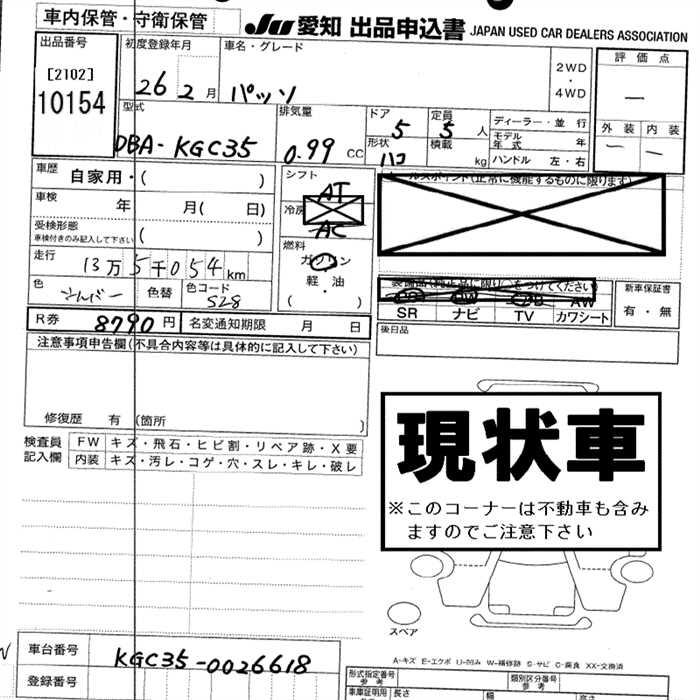 車内保管・守衛保管
JU 愛知 出品申込書 JAPAN USED CAR DEALERS ASSOCIATION
出品番号
[2102]
10154
初度登録年月
26 2月
車名・グレード
パッソ
2WD
・
4WD
評価点
—
外装 内装
— —
型式
DBA-KGC35
排気量
0.99 CC
ドア
5
定員
5 人
形状
ハコ
積載
kg
ディーラー・並行
モデル年式 年
ハンドル 左・右
車歴
自家用・( )
車検
年 月( 日)
受検形態
車検付きのみ記入して下さい ( )
走行
13万5千054km
色
色替
色コード
S28
シフト
AT
冷房
AC
燃料
ガソリン
軽・油
( )
セールスポイント(正常に機能するものに限ります)
装備品(純正品に限り○をつけてください)
SR ナビ TV カワシート
AW
新車保証書
有・無
後日品
R券 8790円 名変通知期限 月 日
注意事項申告欄(不具合内容等は具体的に記入して下さい)
修復歴 有 (箇所 )
検査員
記入欄
FW キズ・飛石・ヒビ割・リペア跡・X要
内装 キズ・汚レ・コゲ・穴・スレ・キレ・破レ
現状車
※このコーナーは不動車も含み
ますのでご注意下さい
スペア
A-キズ E-エクボ U-凹み W-補修跡 S-サビ C-腐食 XX-交換済
車台番号 KGC35-0026618
登録番号
形式指定番号
参考
類別区分番号
参考
車庫証明用
長さ
幅
高さ